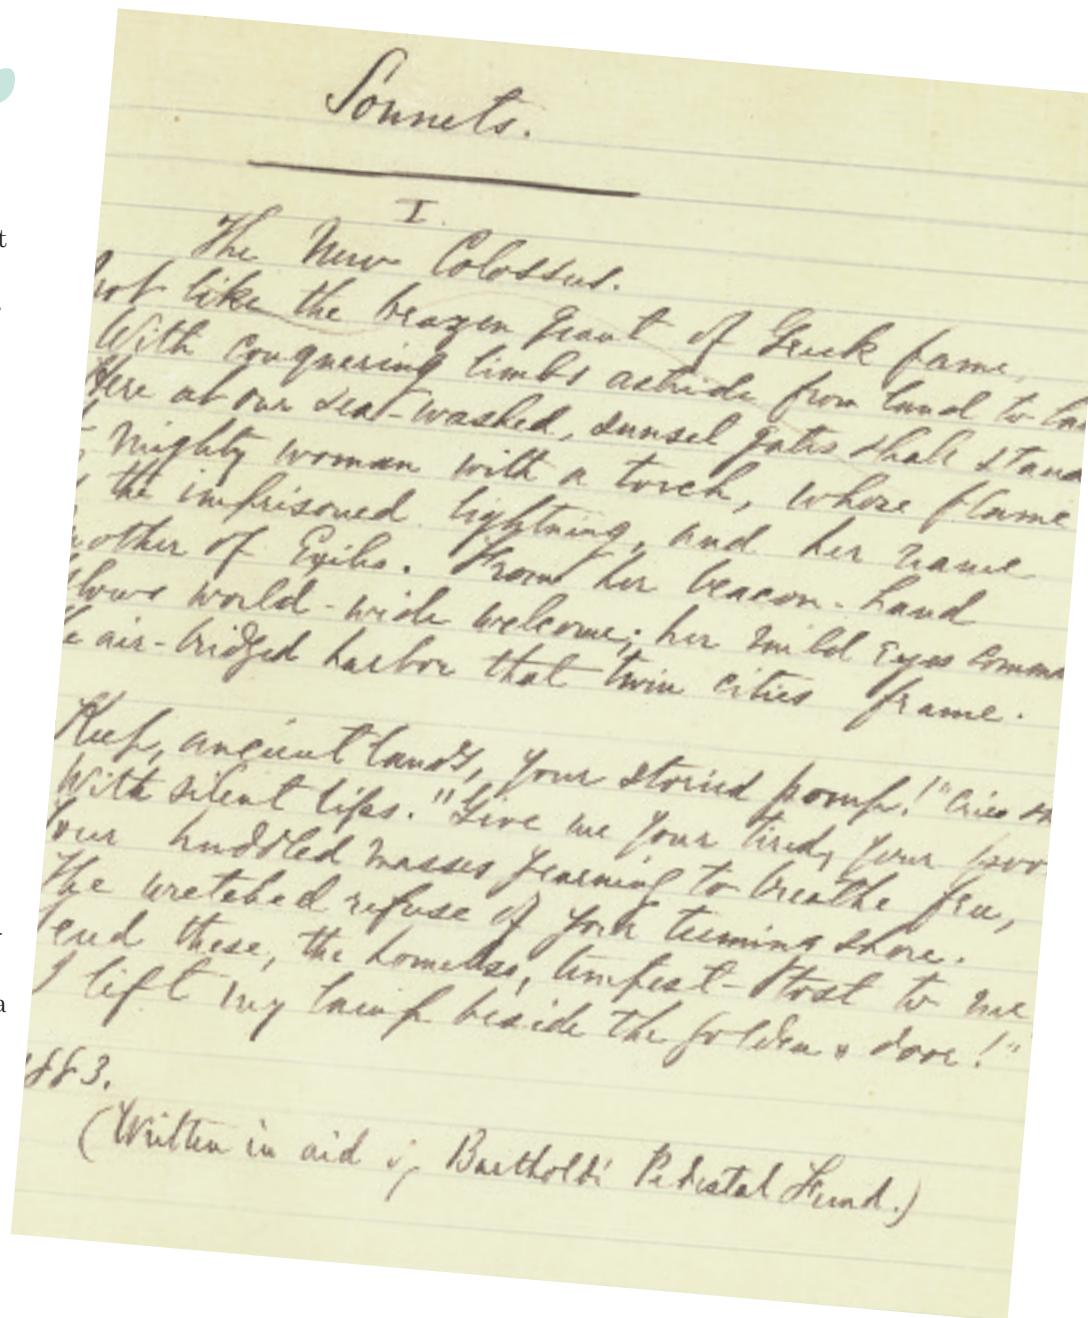 Sonnets.
I.
The New Colossus.
Not like the brazen giant of Greek fame,
With conquering limbs astride from land to lan
Here at our sea-washed, sunset gates shall stand
mighty woman with a torch, whose flame
the imprisoned lightning, and her name
Mother of Exiles. From her beacon-hand
Glows world-wide welcome; her mild eyes comma
e air-bridged harbor that twin cities frame.
Keep, ancient lands, your storied pomp!" cries sh
With silent lips. "Give me your tired, your poor
Your huddled masses yearning to breathe free,
The wretched refuse of your teeming shore.
Send these, the homeless, tempest-tost to me
I lift my lamp beside the golden door!"
1883.
(Written in aid of Bartholdi Pedestal Fund.)
t
a